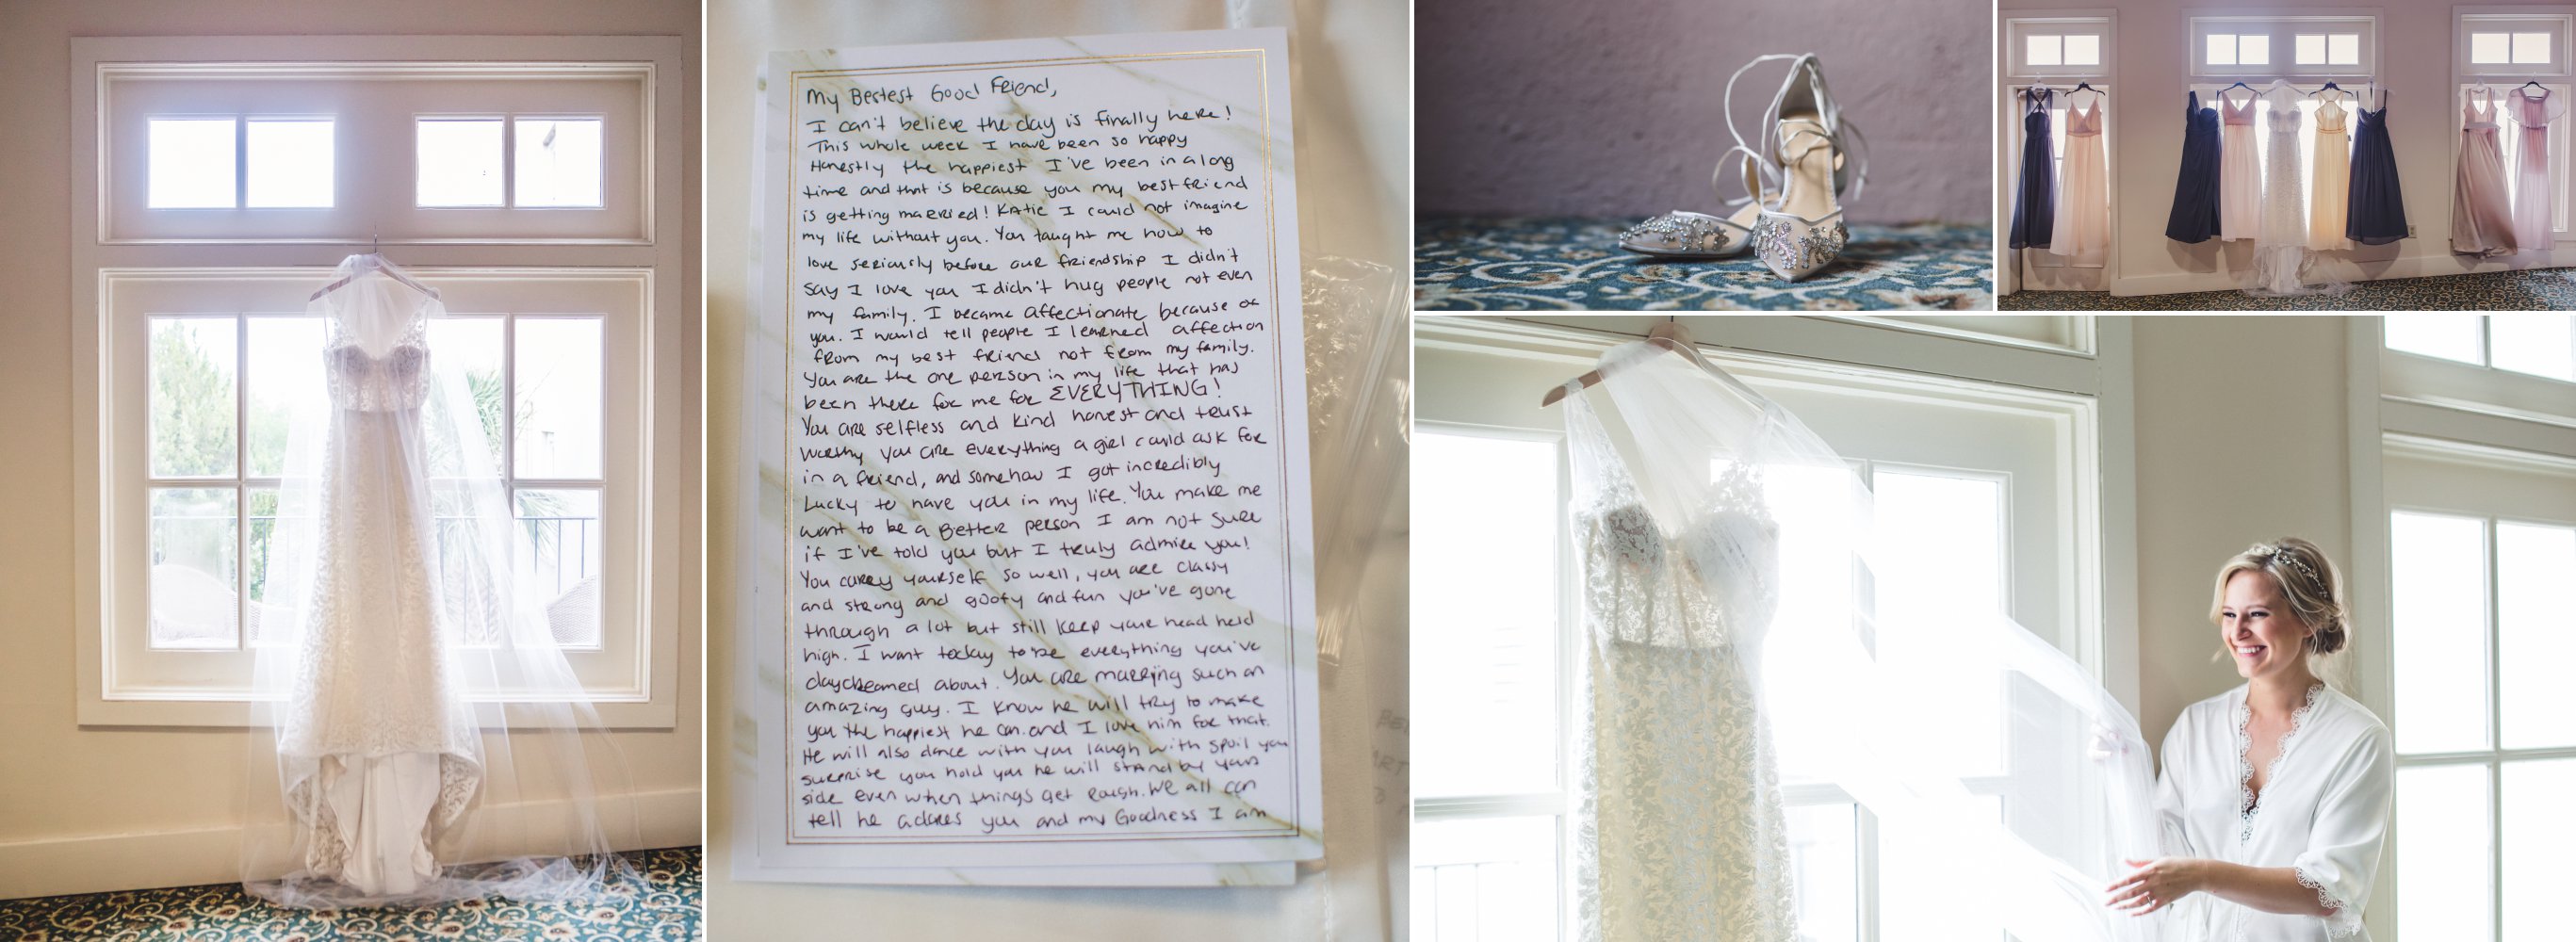 My Bestest Good Friend,
I can't believe the day is finally here!
This whole week I have been so happy
Honestly the happiest I've been in a long
time and that is because you my best friend
is getting married! Katie I could not imagine
my life without you. You taught me how to
love seriously before our friendship I didn't
say I love you I didn't hug people not even
my family. I became affectionate because of
you. I would tell people I learned affection
from my best friend not from my family.
You are the one person in my life that has
been there for me for EVERYTHING!
You are selfless and kind honest and trust
worthy you are everything a girl could ask for
in a friend, and somehow I got incredibly
Lucky to have you in my life. You make me
want to be a Better person I am not sure
if I've told you but I truly admire you!
You carry yourself so well, you are classy
and strong and goofy and fun you've gone
through a lot but still keep your head held
high. I want today to be everything you've
daydreamed about. You are marrying such an
amazing guy. I know he will try to make
you the happiest he can. and I love him for that.
He will also dance with you laugh with spoil you
surprise you hold you he will stand by your
side even when things get rough. We all can
tell he adores you and my Goodness I am